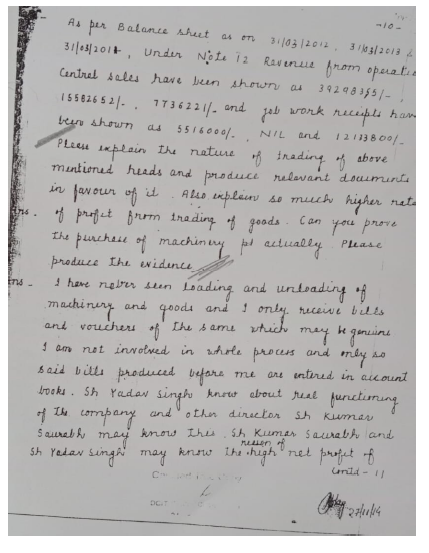 -10-
As per Balance sheet as on 31/03/2012, 31/03/2013 &
31/03/2014, Under Note 12 Revenue from operatio
Central sales have been shown as 39298355/-,
15582652/-, 7736221/- and job work receipts have
been shown as 5516000/-, NIL and 12133800/-
Please explain the nature of trading of above
mentioned heads and produce relevant documents
in favour of it. Also explain so much higher rate
of profit from trading of goods. Can you prove
the purchase of machinery pt actually. Please
produce the evidence
ns - I have never seen loading and unloading of
machinery and goods and I only receive bills
and vouchers of the same which may be genuine
I am not involved in whole process and only so
said bills produced before me are entered in account
books. Sh Yadav Singh know about real functioning
of the company and other director Sh Kumar
Saurabh may know this. Sh Kumar Saurabh and
Sh Yadav Singh may know the reason of high net profit of
Contd - 11
27/11/14